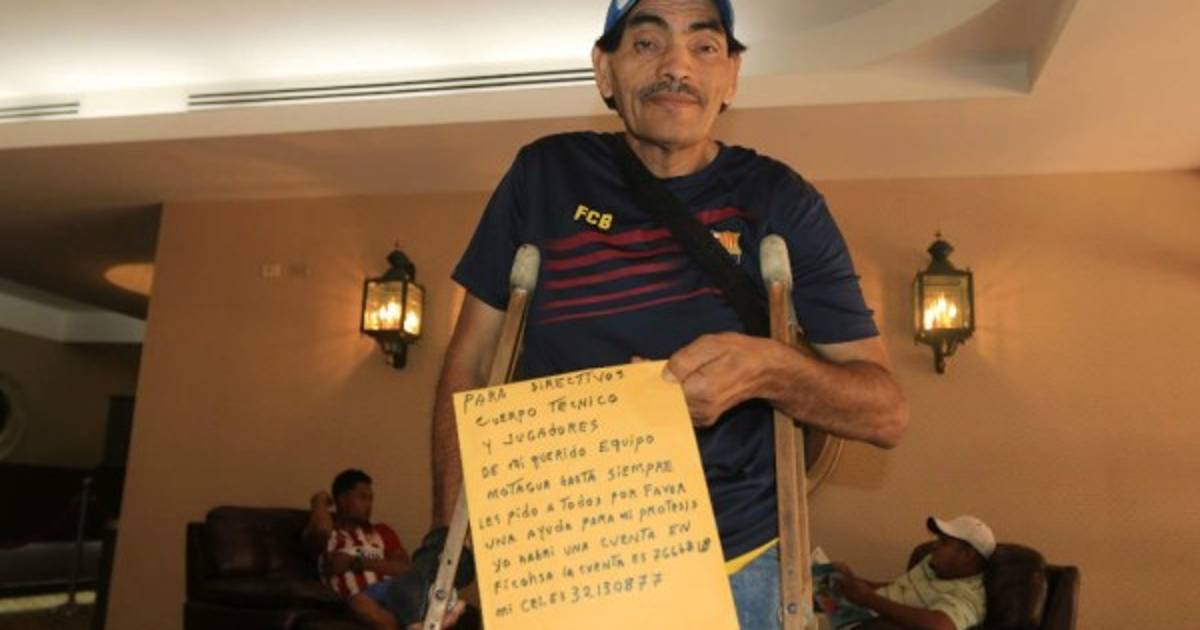 FCB
PARA DIRECTIVOS
CUERPO TECNICO
Y JUGADORES
DE Mi QUERIDO EQUIPO
MOTAGUA HASTA SIEMPRE
LES PIDO A TODOS POR FAVOR
UNA AYUDA PARA MI PROTESIS
YO HABRI UNA CUENTA EN
FICOHSA LA CUENTA ES
MI CEL ES 32130877